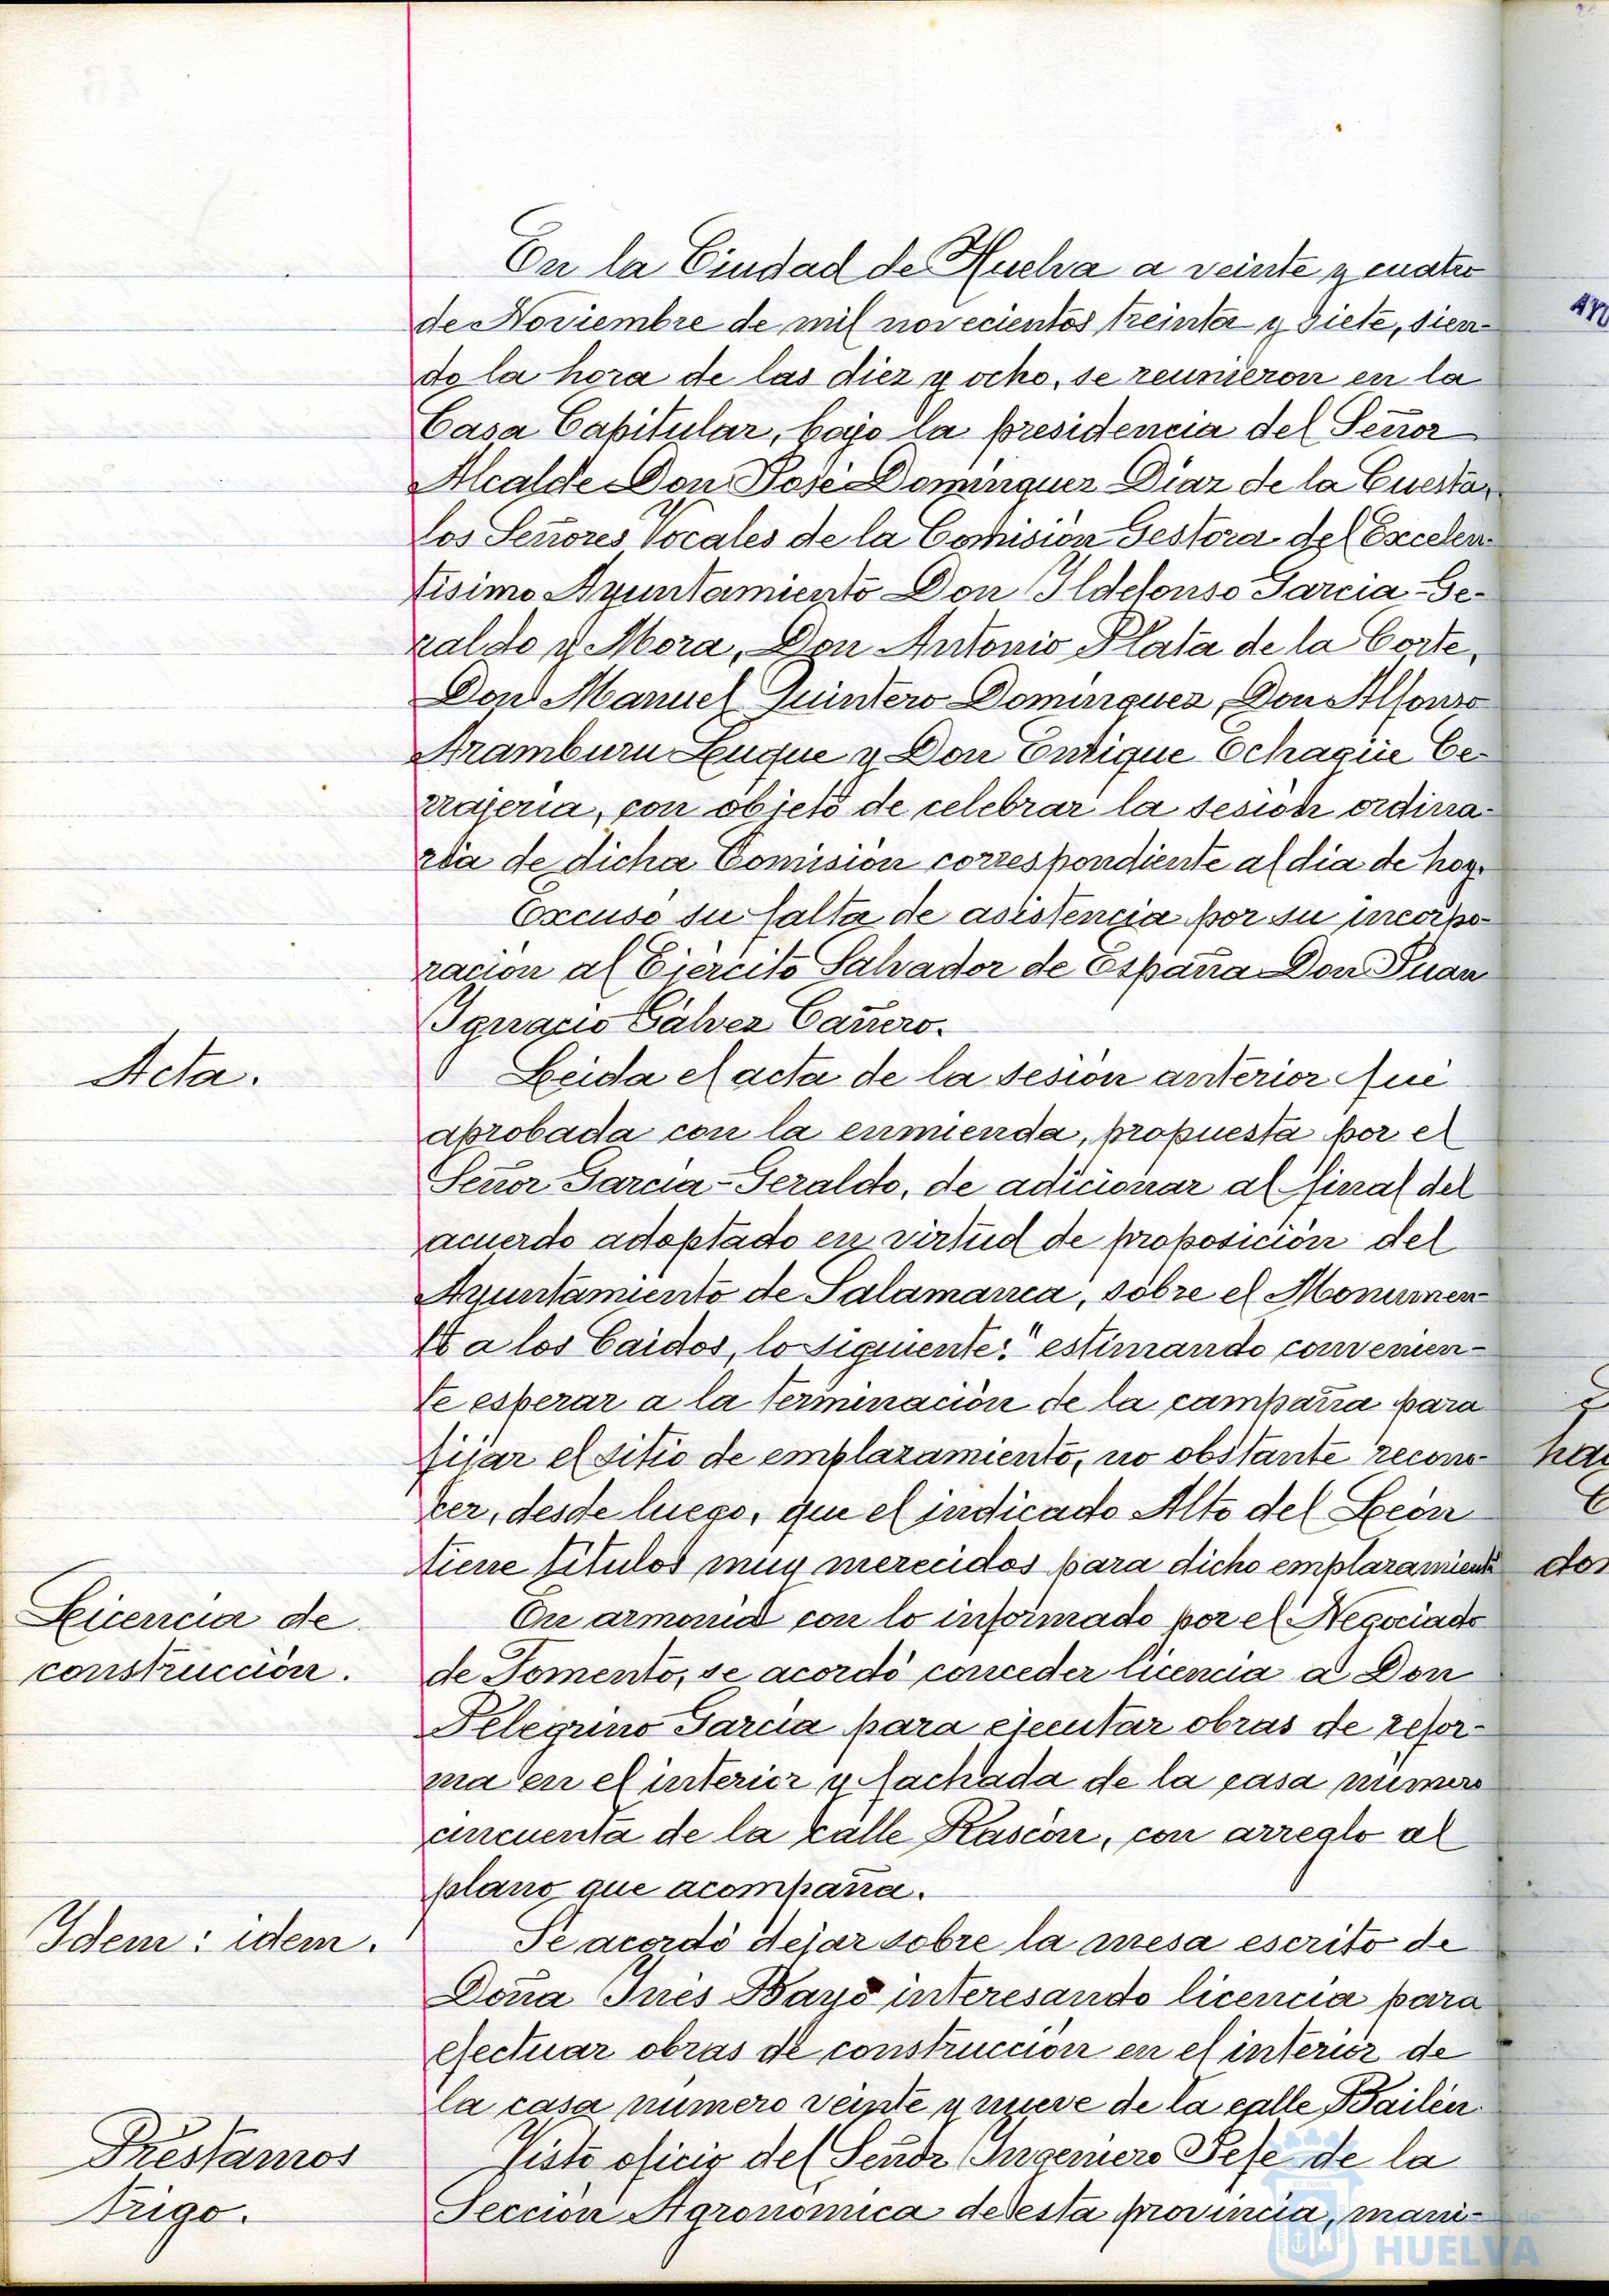 En la Ciudad de Huelva a veinte y cuatro
de Noviembre de mil novecientos treinta y siete, sien-
do la hora de las diez y ocho, se reunieron en la
Casa Capitular, bajo la presidencia del Señor
Alcalde Don José Dominguez Diaz de la Cuesta,
los Señores Vocales de la Comisión Gestora del Excelen-
tisimo Ayuntamiento Don Ildefonso Garcia-Ge-
raldo y Mora, Don Antonio Plata de la Corte,
Don Manuel Quintero Dominguez, Don Alfonso
Aramburu Luque y Don Enrique Echagüe Ce-
rrajeria, con objeto de celebrar la sesión ordina-
ria de dicha Comisión correspondiente al dia de hoy.
Excusó su falta de asistencia por su incorpo-
ración al Ejército Salvador de España Don Juan
Ignacio Gálvez Cañero.
Acta.
Leida el acta de la sesión anterior fué
aprobada con la enmienda, propuesta por el
Señor Garcia-Geraldo, de adicionar al final del
acuerdo adoptado en virtud de proposición del
Ayuntamiento de Salamanca, sobre el Monumen-
to a los Caidos, lo siguiente: "estimando convenien-
te esperar a la terminación de la campaña para
fijar el sitio de emplazamiento, no obstante recono-
cer, desde luego, que el indicado Alto del León
tiene titulos muy merecidos para dicho emplazamiento
Licencia de
construcción.
En armonia con lo informado por el Negociado
de Fomento, se acordó conceder licencia a Don
Pelegrino Garcia para ejecutar obras de refor-
ma en el interior y fachada de la casa número
cincuenta de la calle Rascón, con arreglo al
plano que acompaña.
Idem: idem.
Se acordó dejar sobre la mesa escrito de
Doña Inés Bayo interesando licencia para
efectuar obras de construcción en el interior de
la casa número veinte y nueve de la calle Bailén.
Préstamos
trigo.
Visto oficio del Señor Ingeniero Jefe de la
Sección Agronómica de esta provincia, mani-
HUELVA